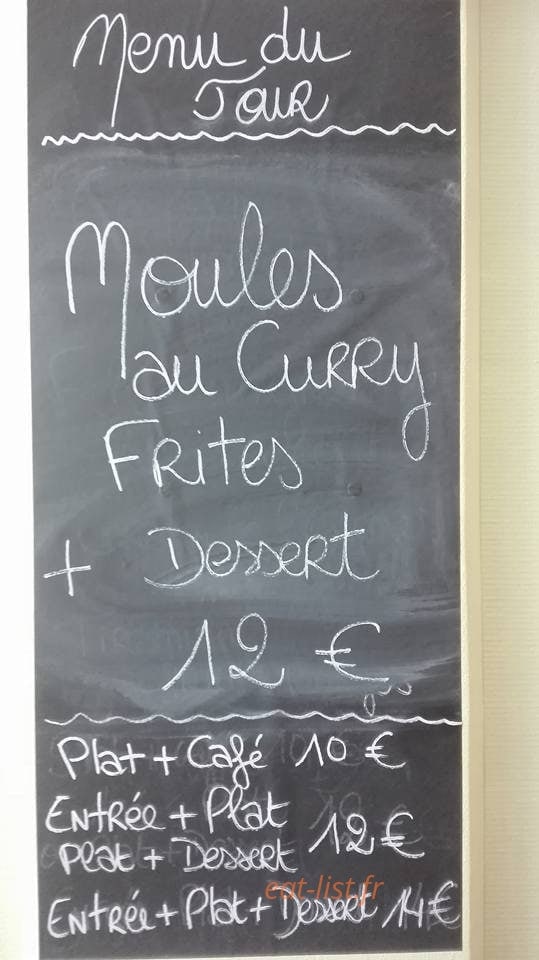 Menu du
Jour
Moules
au Curry
Frites
+ Dessert
12 €
Plat + Café 10 €
Entrée + Plat
12 €
Plat + Dessert
eat-list.fr
Entrée + Plat + Dessert 14 €